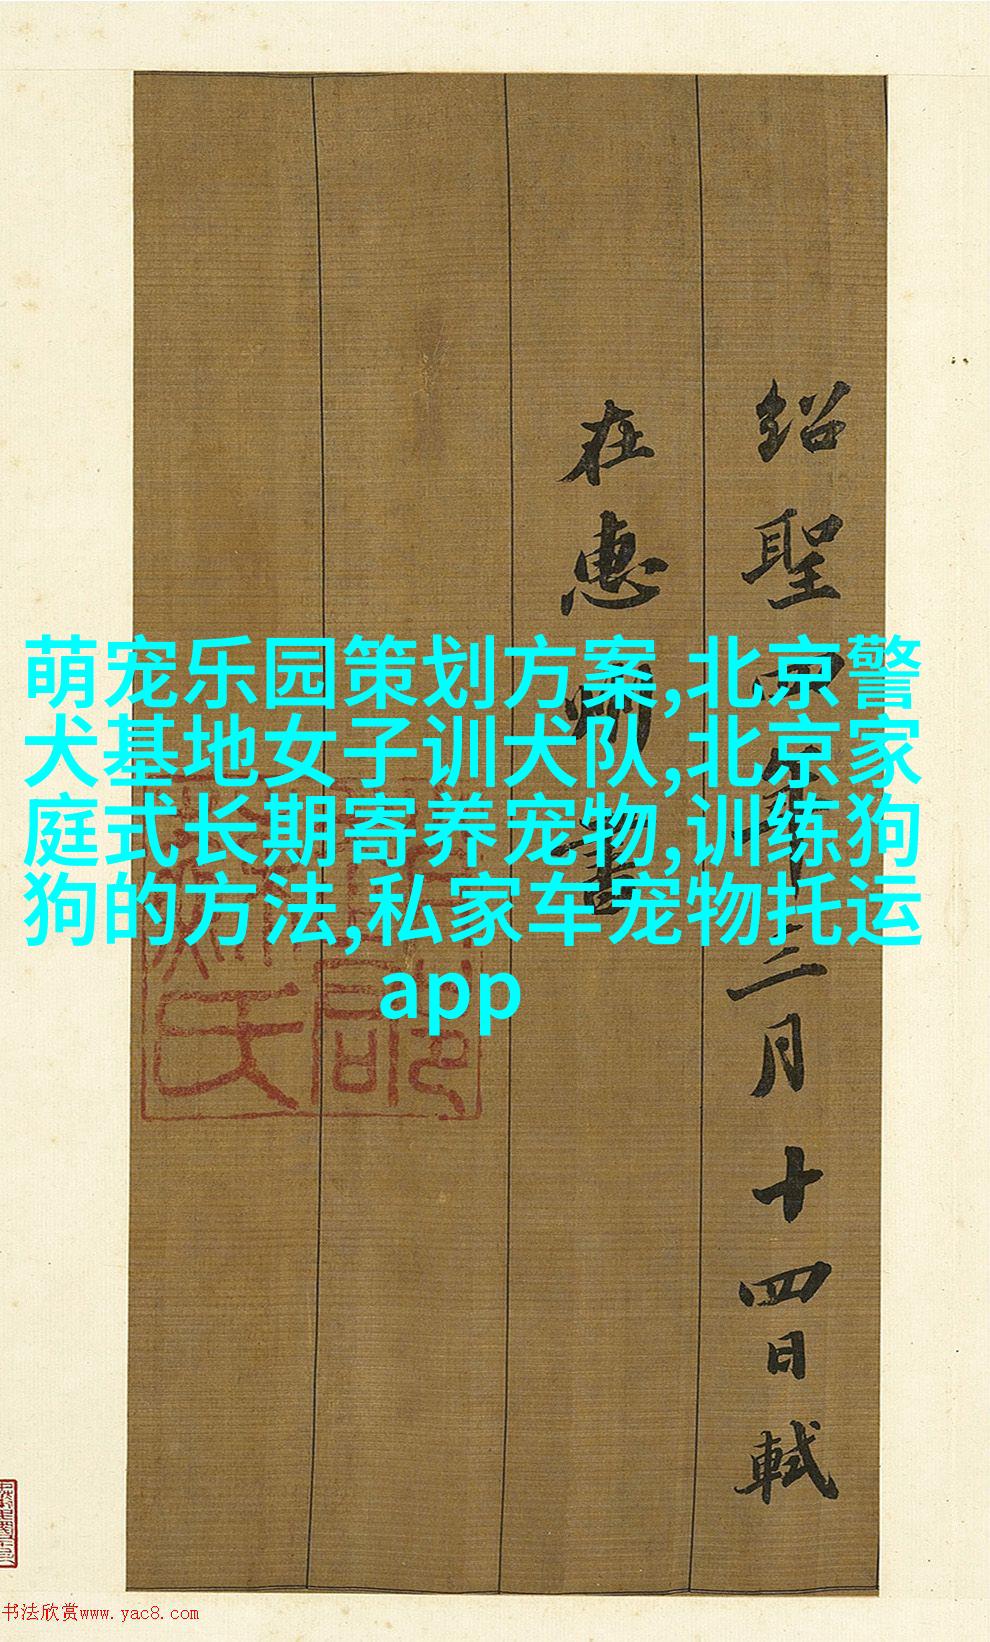 紹聖四年三月十四日軾
在惠州書
萌宠乐园策划方案,北京警
犬基地女子训犬队,北京家
庭式长期寄养宠物,训练狗
狗的方法,私家车宠物托运
app
书法欣赏www.yac8.com